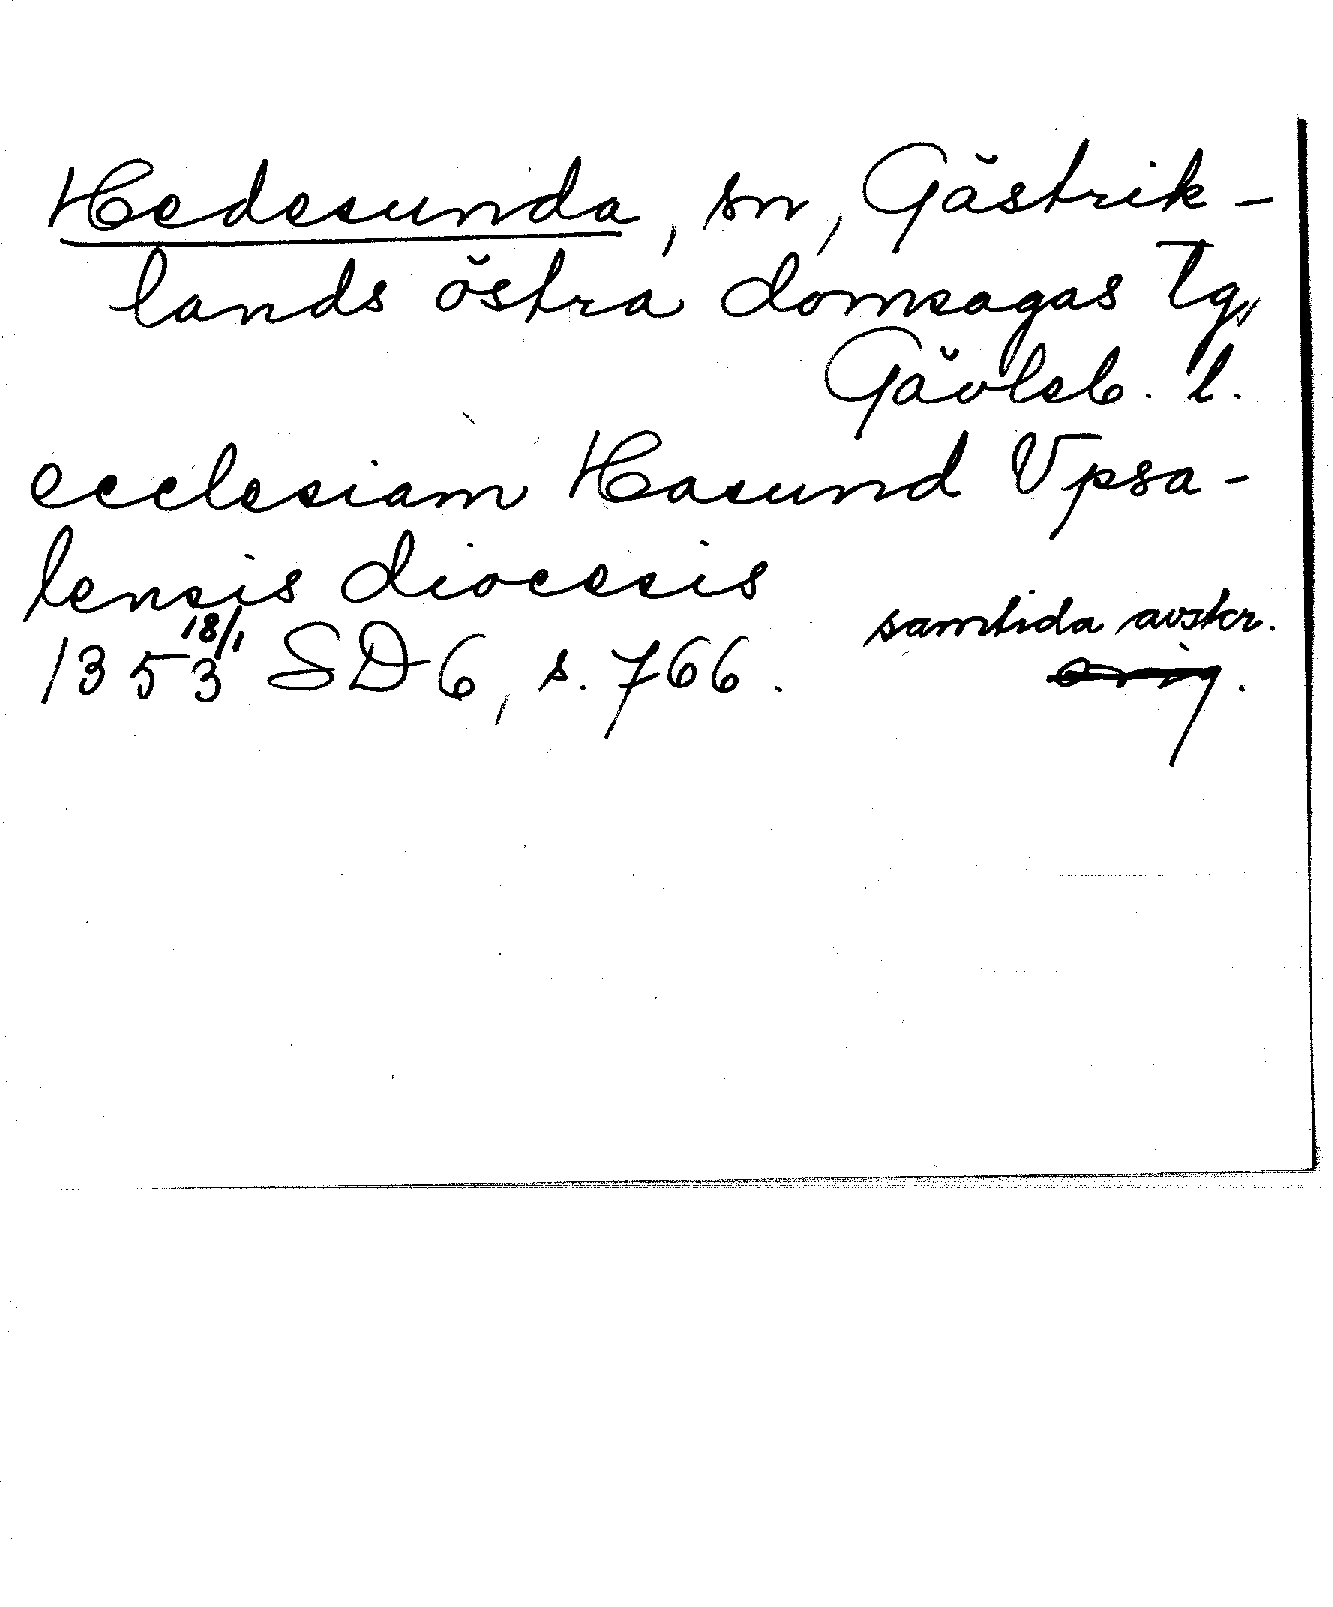 Hedesunda, sn, Gästrik-
lands östra domsagas tg,
Gävleb. l.
ecclesiam Hasund Vpsa-
lensis diocesis
samtida avskr.
1353 18/1 SD 6, s. 766. orig.